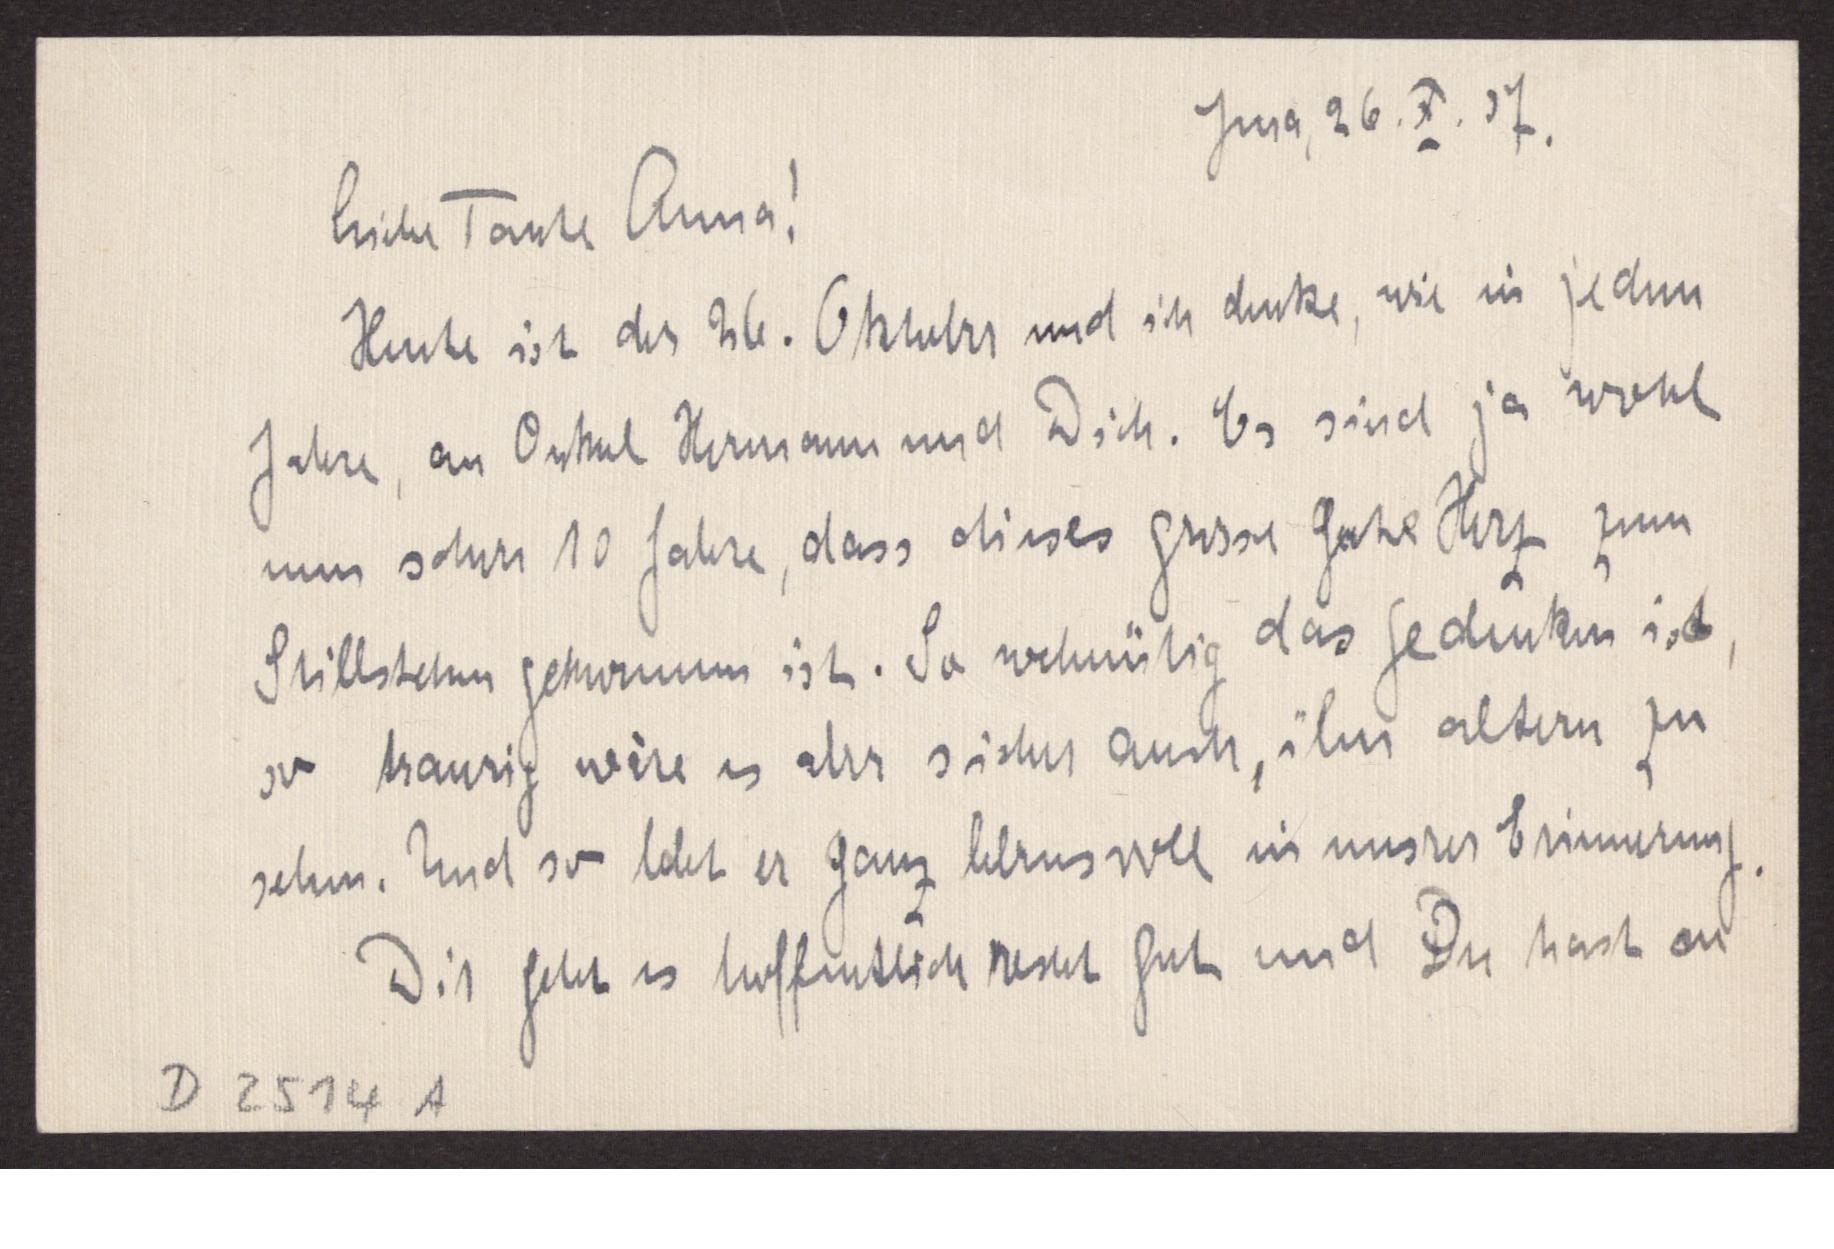 Jena, 26. X. 37.
Liebe Tante Anna!
Heute ist der 26. Oktober und ich denke, wie in jedem
Jahre, an Onkel Hermann und Dich. Es sind ja wohl
nun schon 10 Jahre, dass dieses grosse gute Herz zum
Stillstehen gekommen ist. So wehmütig das Gedenken ist,
so traurig wäre es aber sicher auch, ihn altern zu
sehen. Und so lebt er ganz lebensvoll in unsrer Erinnerung.
Dir geht es hoffentlich recht gut und Du hast an
D 2514 A